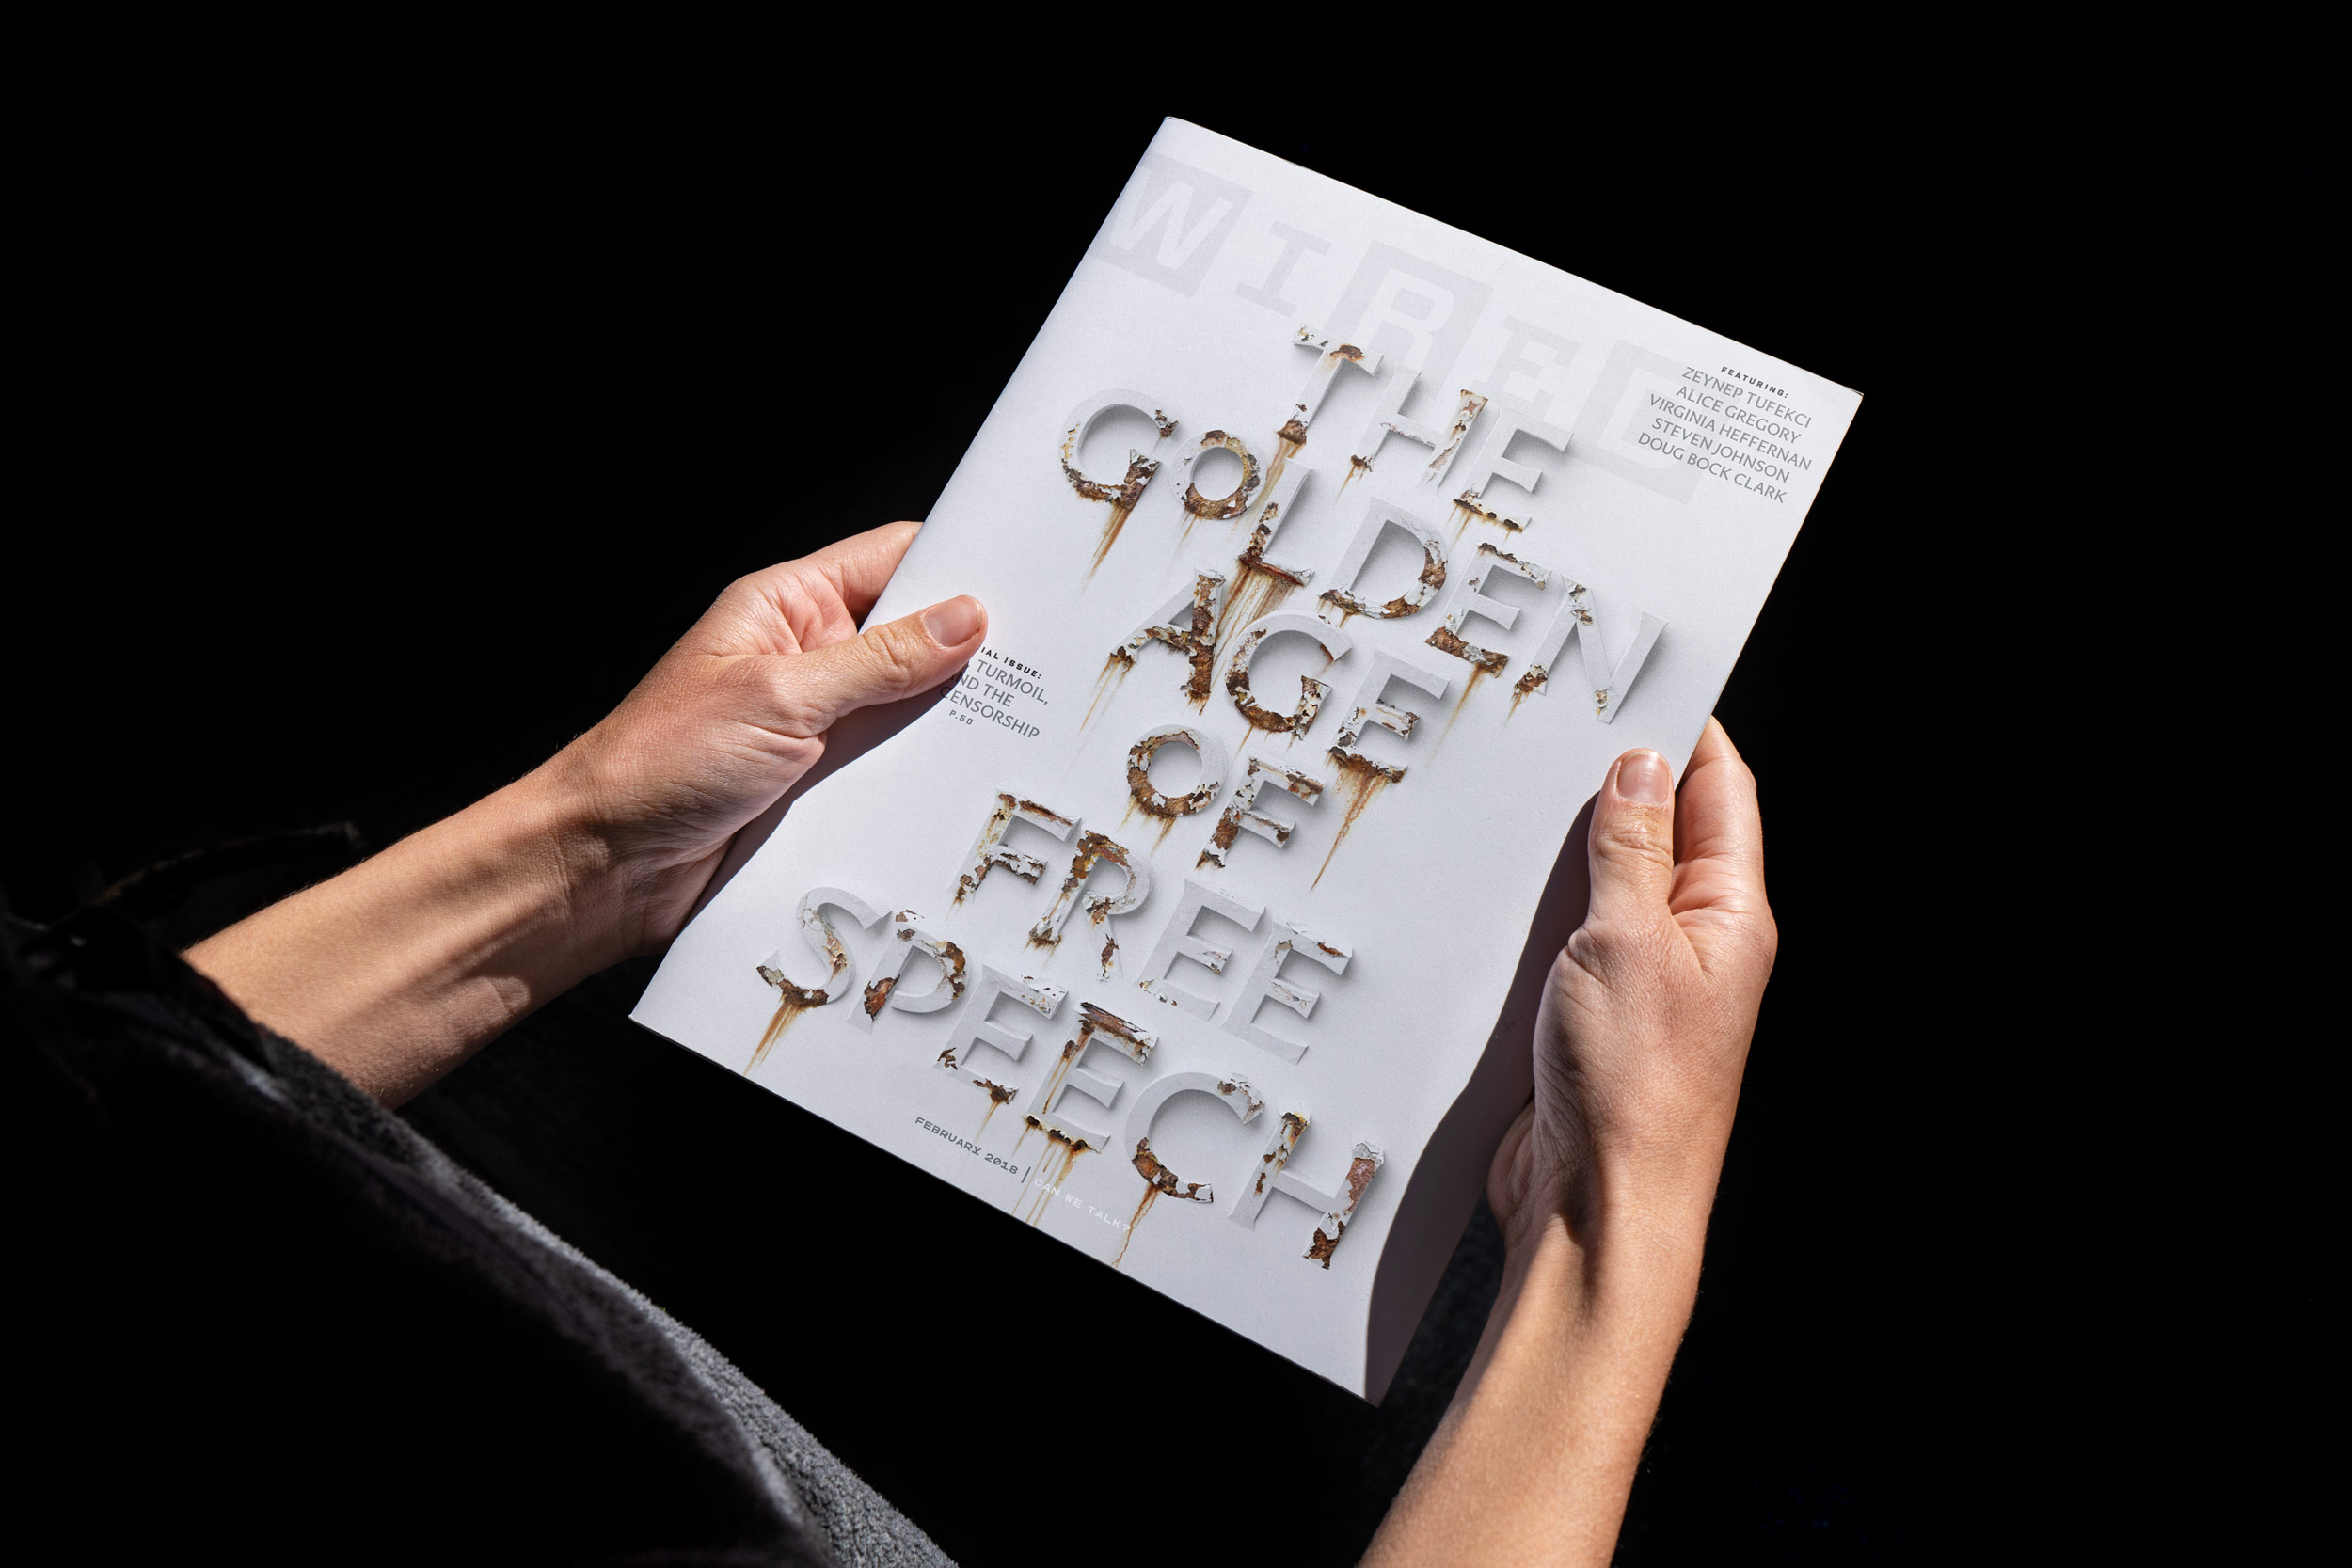 WIRED
FEATURING:
ZEYNEP TUFEKCI
ALICE GREGORY
VIRGINIA HEFFERNAN
STEVEN JOHNSON
DOUG BOCK CLARK
THE
GOLDEN
AGE
OF
FREE
SPEECH
ISSUE:
TURMOIL,
THE
CENSORSHIP
P.50
FEBRUARY 2018 | CAN WE TALK?